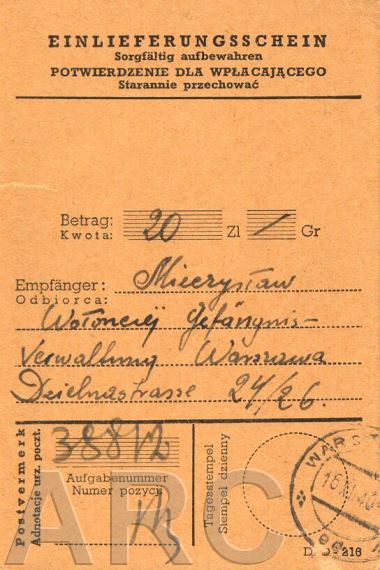 EINLIEFERUNGSSCHEIN
Sorgfältig aufbewahren
POTWIERDZENIE DLA WPŁACAJĄCEGO
Starannie przechować
Betrag: 20 Zl / Gr
Kwota:
Empfänger: Mieczysław
Odbiorca:
Gefängnis-
Verwaltung Warszawa
Dzielnastrasse 24/26.
Postvermerk
Adnotacje urz. poczt.
Aufgabenummer
Numer pozycji
Tagesstempel
Stempel dzienny
ARC